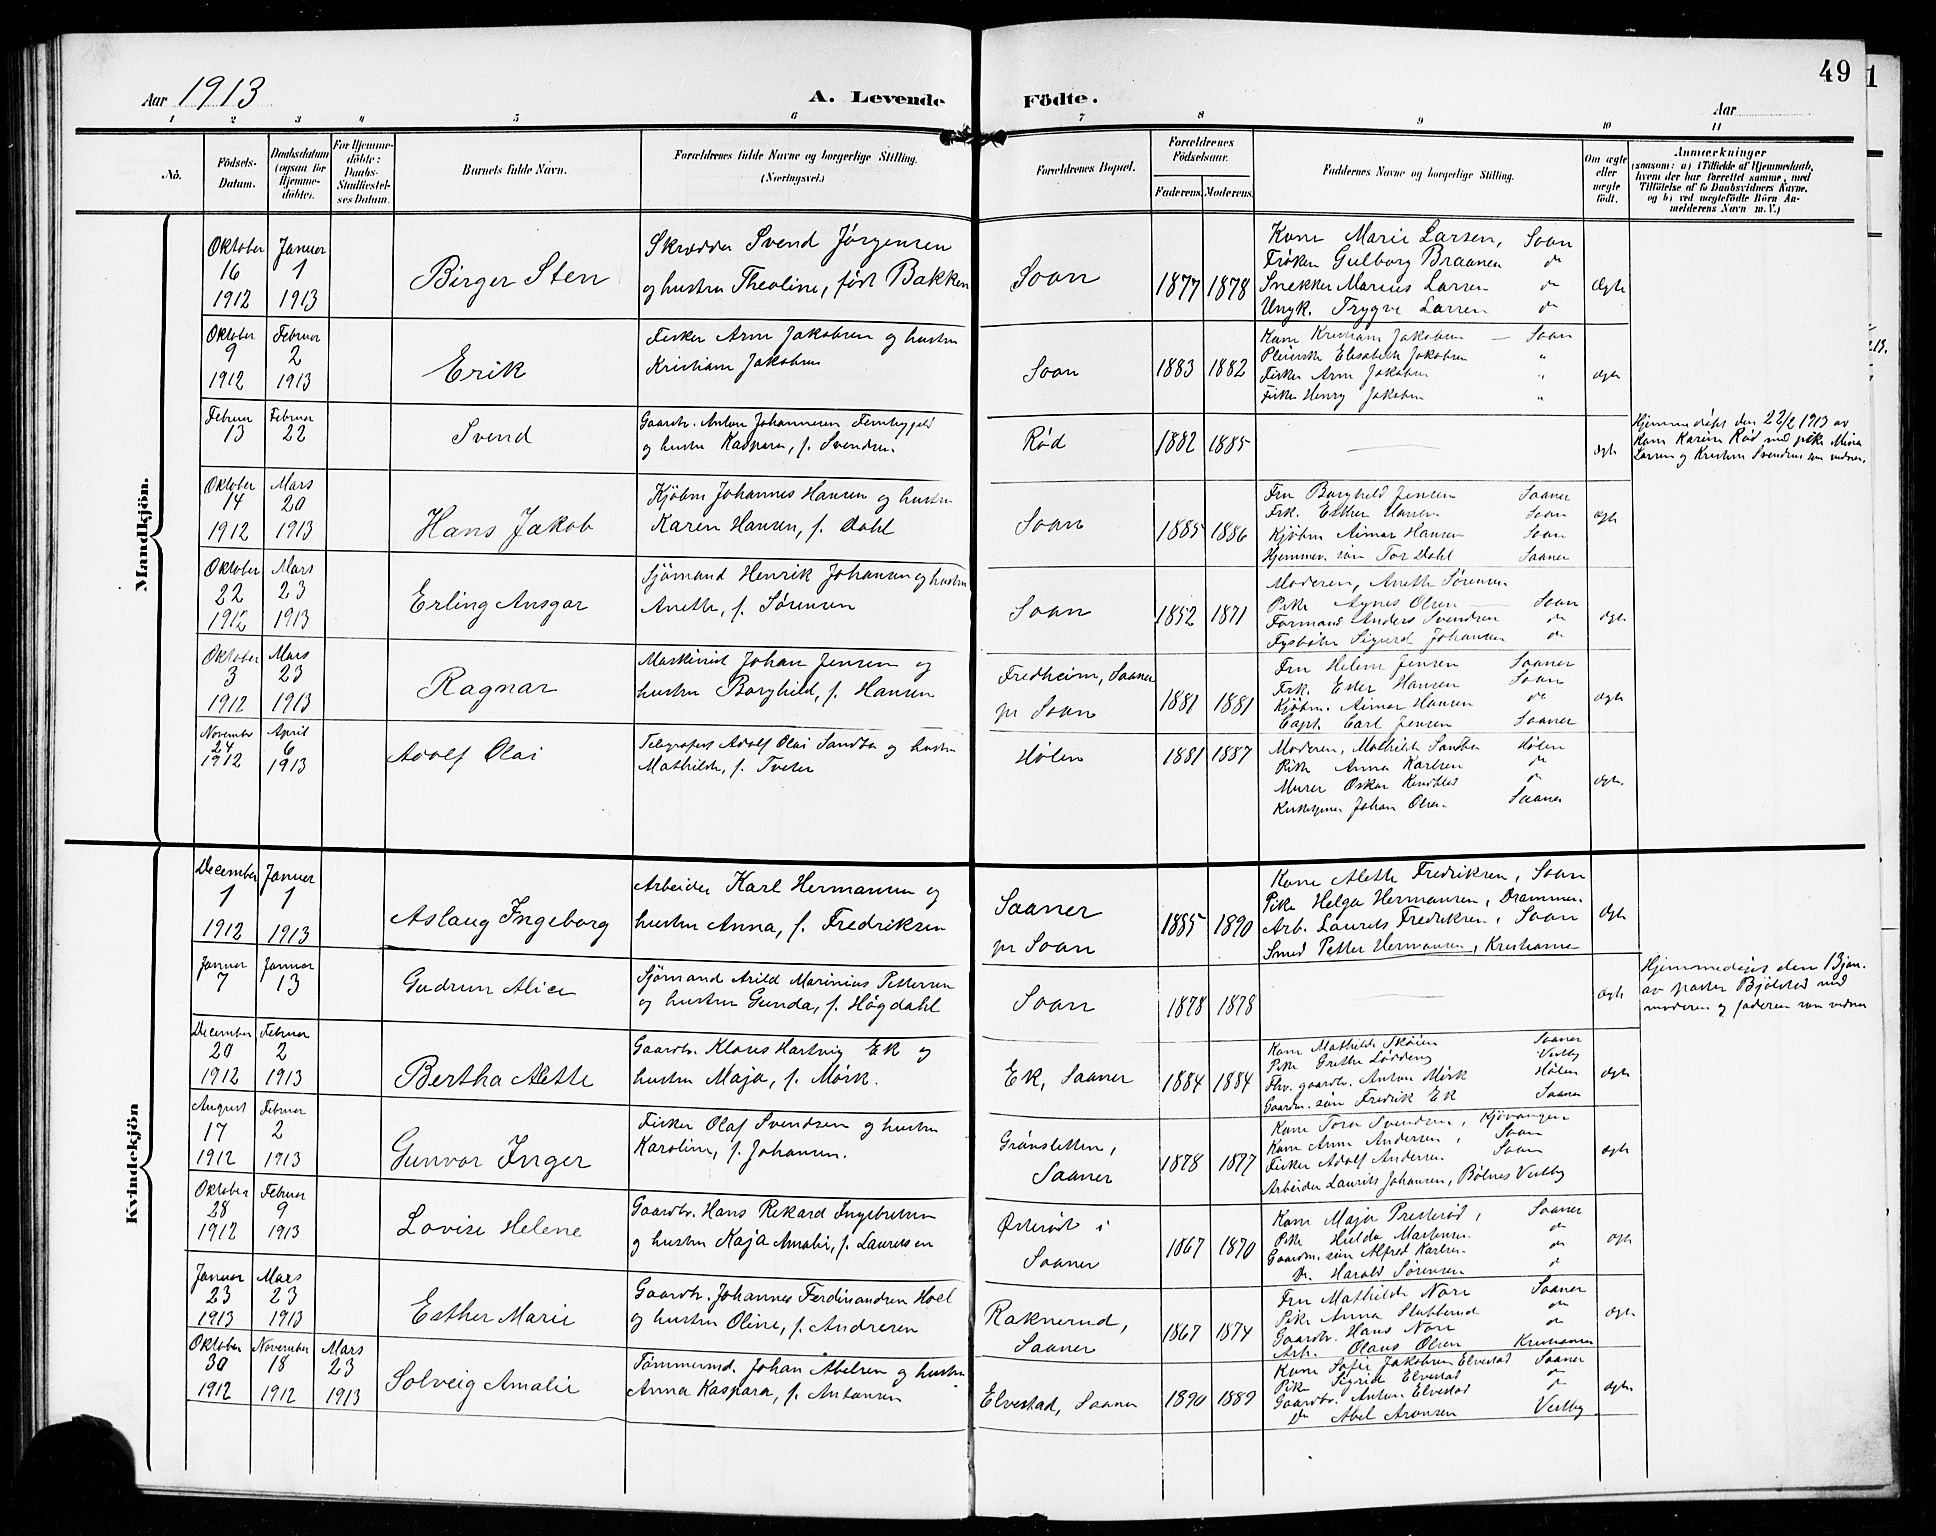 49
Aar 1913
A. Levende Födte.
Aar
1 2 3 4 5 6 7 8 9 10 11
No.
Födsels-
Datum.
Daabsdatum
(ogsaa for
Hjemme-
döbte).
For Hjemme-
döbte:
Daabs-
Stadfæstel-
ses Datum.
Barnets fulde Navn.
Forældrenes fulde Navne og borgerlige Stilling.
(Næringsvei.)
Forældrenes Bopæl.
Forældrenes
Födselsaar.
Faderens.
Moderens.
Faddernes Navne og borgerlige Stilling.
Om ægte
eller
uægte
födt.
Anmærkninger
(saasom: a) i Tilfælde af Hjemmedaab,
hvem der har forrettet samme, med
Tilföielse af to Daabsvidners Navne,
og b) ved uægtefödte Börn An-
melderens Navn m. V.)
Mandkjön.
Oktober 16 1912
Januar 1 1913
Birger Sten
Skrædder Svend Jørgensen
og hustru Theoline, født Bakken
Soon
1877 1878
Kone Marie Larsen, Soon
Frøken Gulborg Braanen do
Snekker Marius Larsen do
Ungk. Trygve Larsen do
Ægte
Oktober 9 1912
Februar 2 1913
Erik
Fisker Arne Jakobsen og hustru
Kristiane Jakobsen
Soon
1883 1882
Kone Kristiane Jakobsen — Soon
Pleierske Elisabeth Jakobsen "
Fisker Arne Jakobsen "
Fisker Henry Jakobsen "
ægte
Februar 13
Februar 22
Svend
Gaardbr. Anton Johannesen
og hustru Kaspara, f. Svendsen
Rød
1882 1885
ægte
Hjemmedøpt den 22/2 1913 av
Kone Karine Rød med pike Mina
Larsen og Kristine Svendsen som vidner.
Oktober 14 1912
Mars 20 1913
Hans Jakob
Kjøbm Johannes Hansen og hustru
Karen Hansen, f. Dahl
Soon
1885 1886
Fru Borghild Jensen Saaner
Frk. Esther Hansen Soon
Kjøbm Aimar Hansen Soon
Hjemmev. søn Tor Dahl Saaner
ægte
Oktober 22 1912
Mars 23 1913
Erling Ansgar
Sjømand Henrik Johansen og hustru
Anette, f. Sørensen
Soon
1852 1871
Moderen, Anette Sørensen
Pike Agnes Olsen — Soon
Formand Anders Svendsen do
Fyrbøter Sigurd Johansen do
ægte
Oktober 3 1912
Mars 23 1913
Ragnar
Maskinist Johan Jensen og
hustru Borghild, f. Hansen
Fredheim, Saaner
pr Soon
1881 1881
Fru Helene Jensen Saaner
Frk. Ester Hansen Soon
Kjøbm. Aimar Hansen do
Capt. Carl Jensen Saaner
ægte
November 24 1912
April 6 1913
Adolf Olai
Telegrafist Adolf Olai Sandbu og hustru
Mathilde, f. Tveter
Hølen
1881 1887
Moderen, Mathilde Sandbu Hølen
Pike Anna Karlsen do
Murer Oskar do
Kirketjener Johan Olsen Saaner
ægte.
Kvindekjön
December 1 1912
Januar 1 1913
Aslaug Ingeborg
Arbeider Karl Hermansen og
hustru Anna, f. Fredriksen
Saaner
pr Soon
1885 1890
Kone Alette Fredriksen, Soon
Pike Helga Hermansen, Drammen.
Arb. Laurits Fredriksen, Soon
Smed Petter Hermansen, Kristiania
Ægte
Januar 7
Januar 13
Gudrun Alice
Sjømand Arild Marinius Pettersen
og hustru Gunda, f. Høgdahl
Soon
1878 1878
ægte
Hjemmedøpt den 13 jan.
av pastor Bjølstad med
moderen og faderen som vidner
December 20 1912
Februar 2 1913
Bertha Alette
Gaardbr. Klaus Hartvig Ek og
hustru Maja, f. Mørk.
Ek, Saaner
1884 1884
Kone Mathilde Skøien Saaner
Pike Grethe Vestby
Fhv. gaardbr. Anton Mørk Hølen
Gaardm. søn Fredrik Ek Saaner
ægte
August 17 1912
Februar 2 1913
Gunvor Inger
Fisker Olaf Svendsen og hustru
Karoline, f. Johansen.
Grønsletten,
Saaner
1878 1877
Kone Tora Svendsen, Kjøvangen
Kone Anne Andersen, Soon
Fisker Adolf Andersen Soon
Arbeider Laurits Johansen, Bølnes Vestby
ægte
Oktober 28 1912
Februar 9 1913
Lovise Helene
Gaardbr. Hans Rikard Ingebretsen
og hustru Kaja Amalie, f. Lauretsen
Østerød i
Saaner
1867 1870
Kone Maja Presterød, Saaner
Pike Hulda Martinsen do
Gaardm. søn Alfred Karlsen do
Do. Harald Sørensen do
ægte
Januar 23 1913
Mars 23 1913
Esther Marie
Gaardbr. Johannes Ferdinandsen Hoel
og hustru Oline, f. Andresen
Raknerud,
Saaner
1867 1874
Fru Mathilde Nore Saaner
Pike Anna Slubberud do
Gaardbr. Hans Nore do
Arb. Olaus Olsen Kristiania
ægte
Oktober 30 1912
November 18 1912
Mars 23 1913
Solveig Amalie
Tømmermd. Johan Abelsen og hustru
Anna Kaspara, f. Antonsen
Elvestad, Saaner
1890 1889
Kone Sofie Jakobsen Elvestad Saaner
Pike Sigrid Elvestad do
Gaardbr. Anton Elvestad do
Do Abel Aronsen Vestby
ægte.